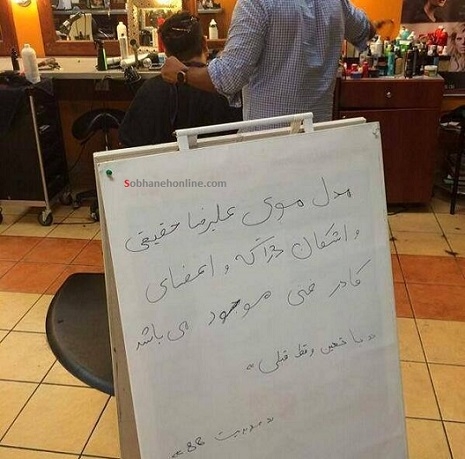 Sobhanehonline.com
مدل موی علیرضا حقیقی
و اشکان دژاگه و اعضای
کادر فنی موجود می باشد
«با تعیین وقت قبلی»
«مدیریت